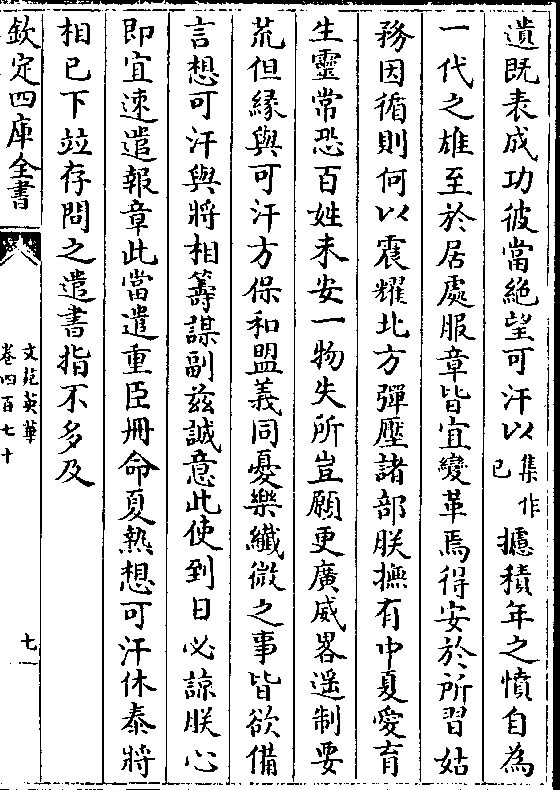 遺既表成功彼當絶望可汗以集作已攄積年之憤自為
一代之雄至於居處服章皆宜變革焉得安於所習姑
務因循則何以震耀北方彈壓諸部朕撫有中夏愛育
生靈常恐百姓未安一物失所豈願更廣威畧遥制要
荒但緣與可汗方保和盟義同憂樂纎微之事皆欲備
言想可汗與將相籌謀副兹誠意此使到日必諒朕心
即宜速遣報章此當遣重臣册命夏熱想可汗休泰將
相已下並存問之遣書指不多及
欽定四庫全書
文苑英華
卷四百七十
七